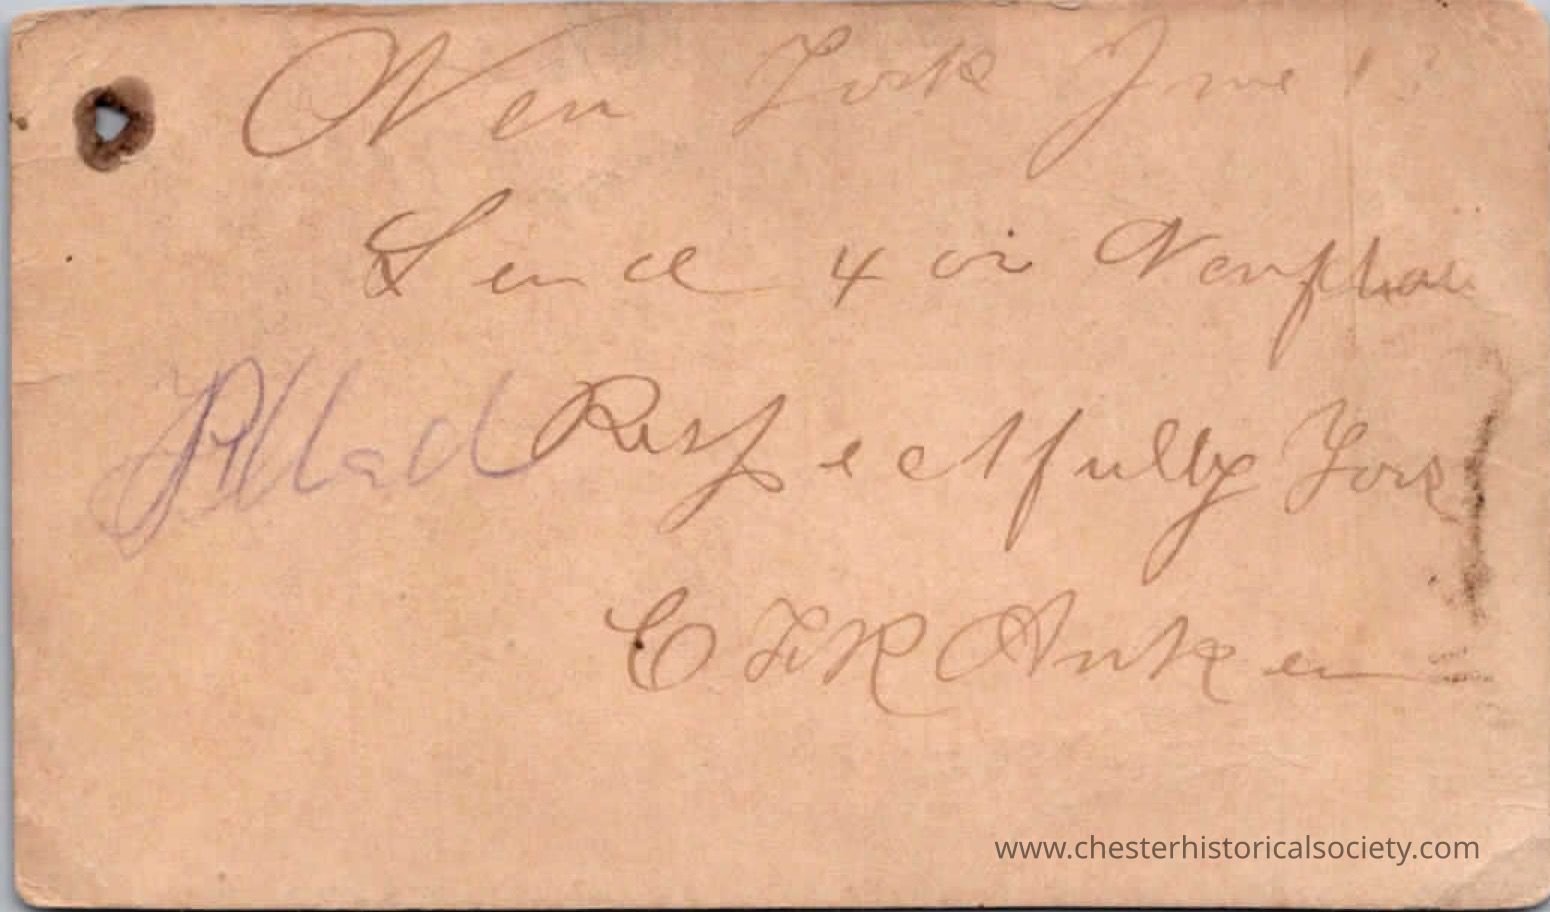 New York June
Send 4 on
Respectfully Yors
C F R Anken
www.chesterhistoricalsociety.com